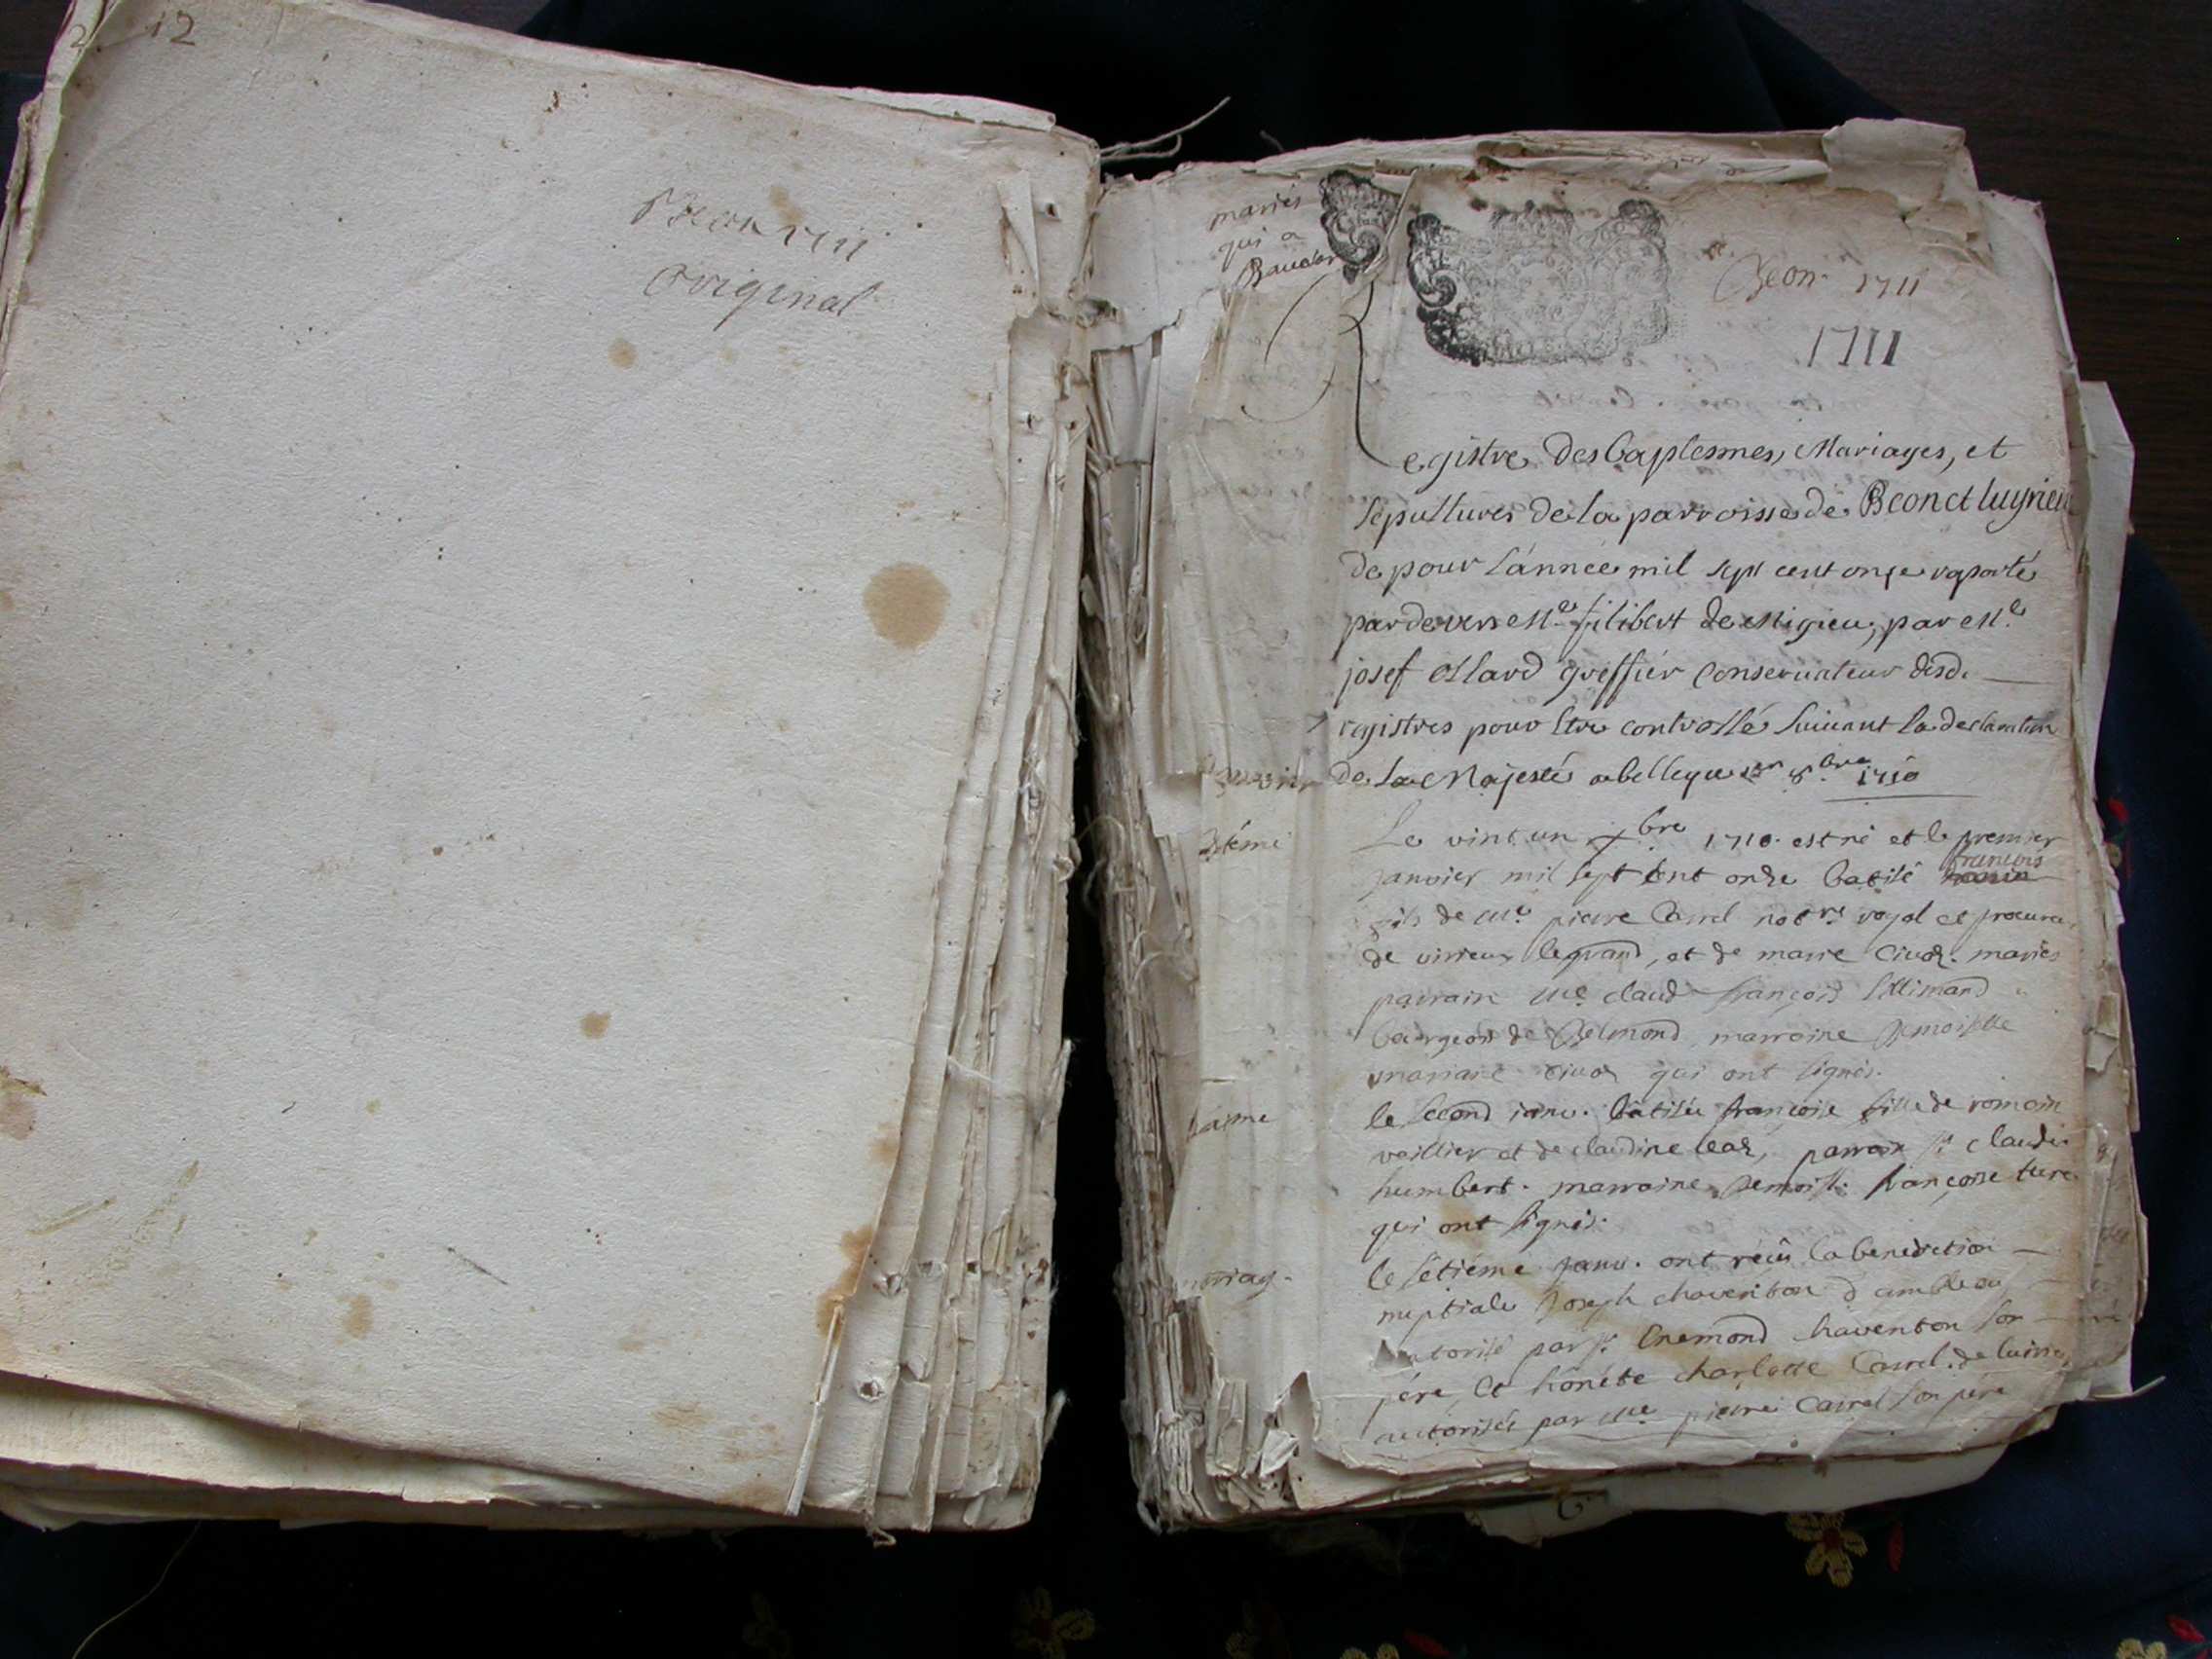 12
original
mariés
qui a
Beon 1711
1711
Registre des baptesmes, Mariages, et
sepultures de la parroisse de Beon et luyrieu
de pour l'année mil sept cent onze raporté
pardevers Me filibert de Migieu, par Me
josef ollard greffier conservateur desd.
registres pour être controllé suivant la declaration
de sa Majesté a belley ce 8bre 1710
Le vint un xbre 1710. est né et le premier
janvier mil sept cent onze batisé françois
fils de Me pierre Carrel notre royal et procureu
de virieux legrand, et de marie mariés
parrain Me claud françois
bourgeois de Belmond, marraine Demoiselle
qui ont signés.
le second janv. batisée françoise fille de romain
et de claudine parrain sr claude
humbert. marraine Demoislle françoise
qui ont signés.
mariag.
le sétiéme janv. ont reçûs la benediction
nuptiale Joseph
par sr. son
pére, et honéte charlotte Carrel. de
autorisée par Me pierre Carrel son pére